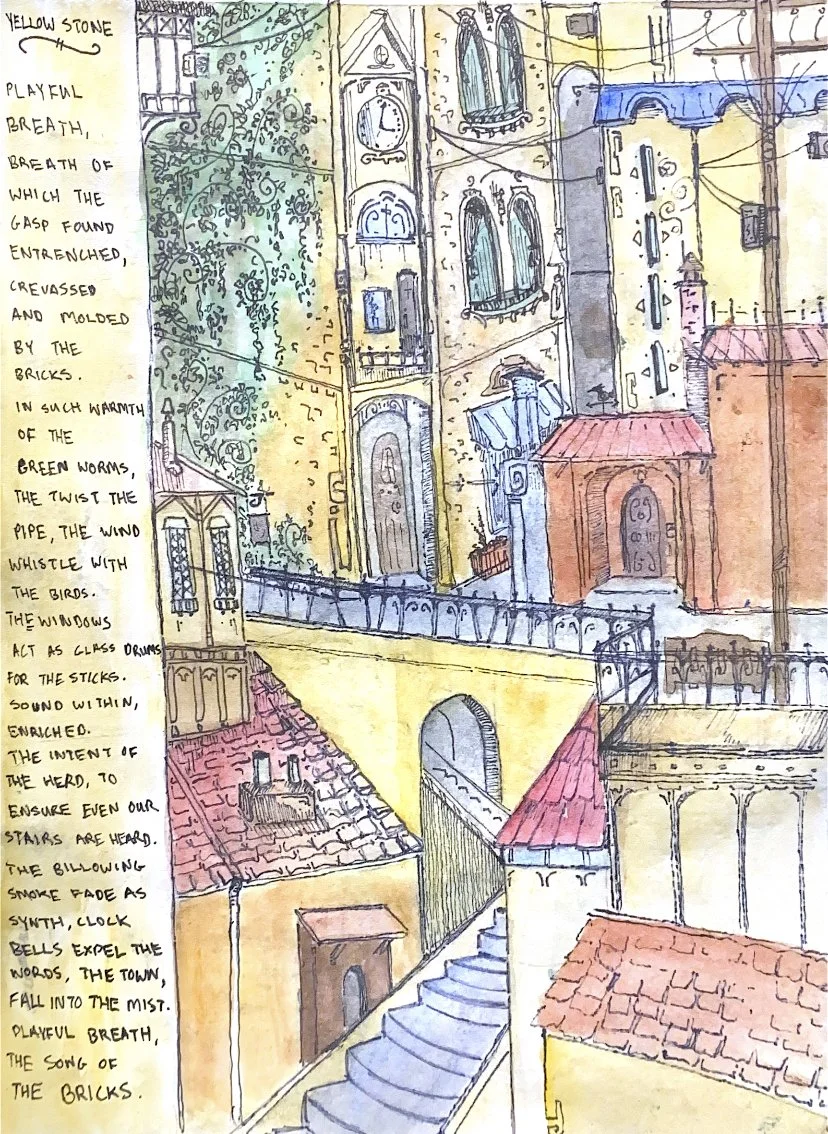 YELLOW STONE
PLAYFUL
BREATH,
BREATH OF
WHICH THE
GASP FOUND
ENTRENCHED,
CREVASSED
AND MOLDED
BY THE
BRICKS.
IN SUCH WARMTH
OF THE
GREEN WORMS,
THE TWIST THE
PIPE, THE WIND
WHISTLE WITH
THE BIRDS.
THE WINDOWS
ACT AS GLASS DRUMS
FOR THE STICKS.
SOUND WITHIN,
ENRICHED.
THE INTENT OF
THE HERD, TO
ENSURE EVEN OUR
STAIRS ARE HEARD.
THE BILLOWING
SMOKE FADE AS
SYNTH, CLOCK
BELLS EXPEL THE
WORDS, THE TOWN,
FALL INTO THE MIST.
PLAYFUL BREATH,
THE SONG OF
THE BRICKS.